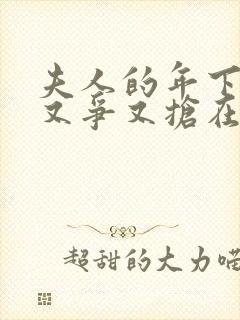 夫人的年下
又爭又搶在
超甜的大力喵